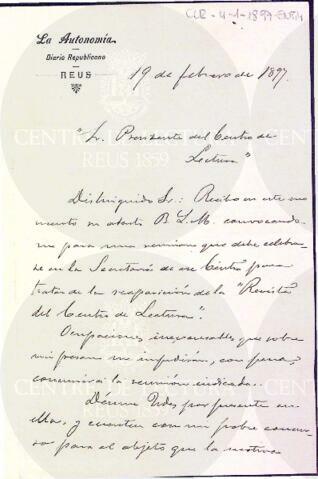 CLR-4-1-1897-
La Autonomía
Diario Republicano
REUS
19 de febrero de 1897.
"Sr. Presidente del Centro de
Lectura"
Distinguido Sr.: Recibo en este mo
mento su atento B. L. M. convocando
me para una reunion que debe celebrar
se en la Secretaría de ese Centro para
tratar de la reaparición de la "Revista
del Centro de Lectura".
Ocupaciones inexcusables que sobre
mi pesan me impedirán, con pena,
concurrir a la reunión indicada.
Dénme Vdes por presente en
ella, y cuenten con mi pobre concur
so para el objeto que la motiva
CENTRE DE LECTURA
REUS 1859